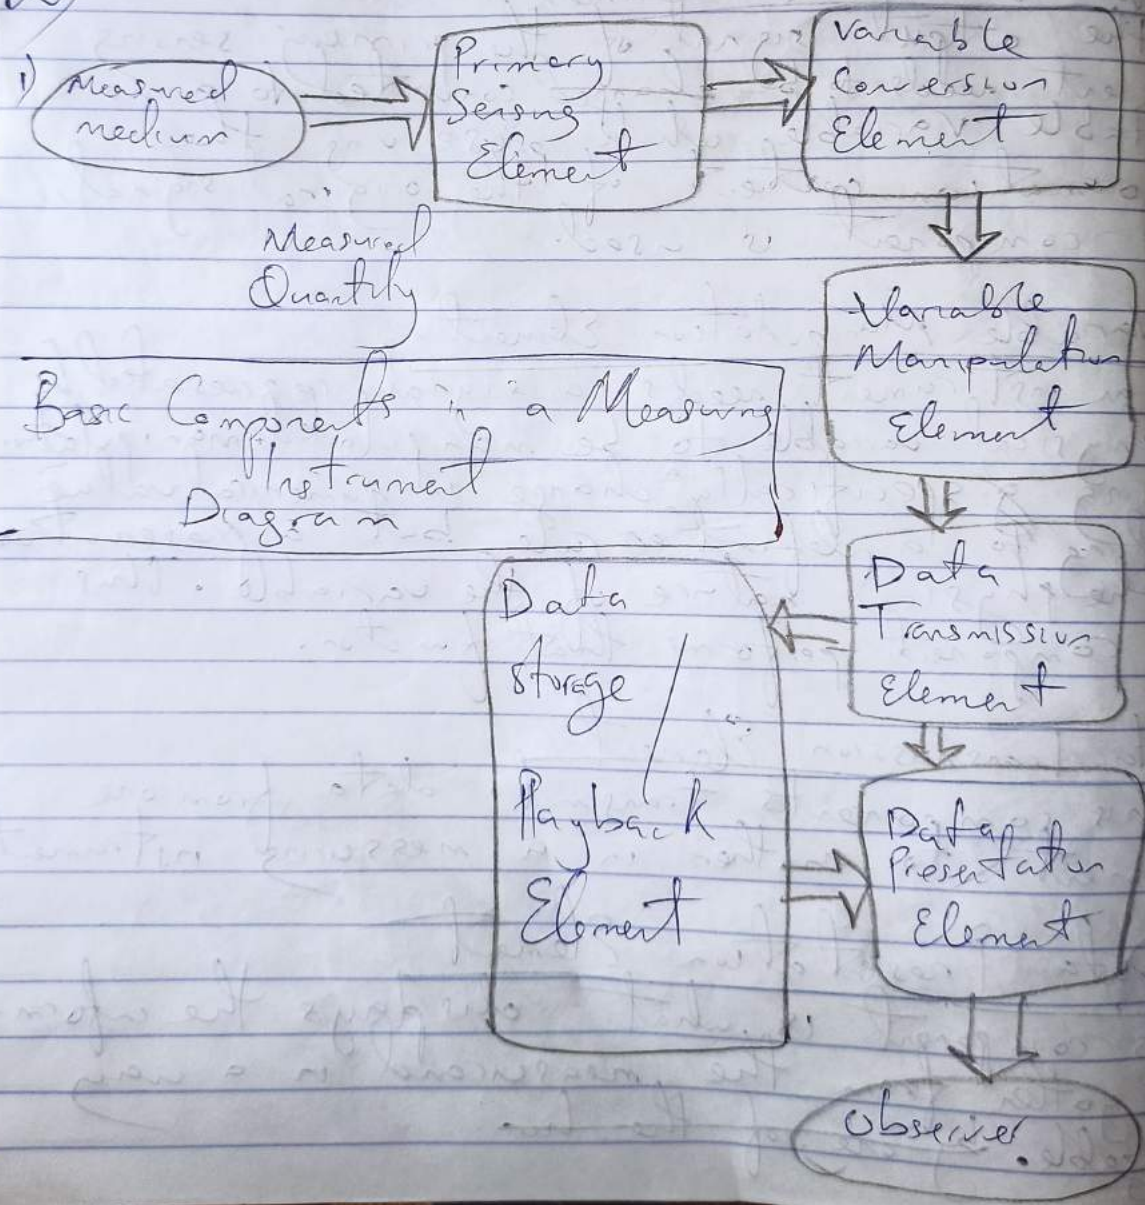 1)
Measured
medium
Primary
Seisng
Element
Variable
Conversion
Element
Measured
Quantity
Variable
Manipulation
Element
Basic Components in a Measuring
Instrument
Diagram
Data
Transmission
Element
Data
Storage /
Playback
Element
Data
Presentation
Element
Observer.